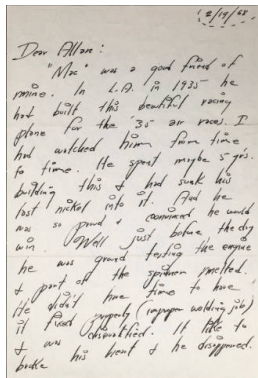 2/19/68
Dear Allan:
"Mac" was a good friend of
mine. In L.A. in 1935 he
had built this beautiful racing
plane for the '35 air races. I
had watched him from time
to time. He spent maybe 5 yrs.
building this & had sunk his
last nickel into it. And he
was so proud & convinced he would
win. Well just before the day
he was ground testing the engine
& part of the spinner melted.
He didn't have time to have
it fixed properly (improper welding job)
& was disqualified. It like to
broke his heart & he disappeared.